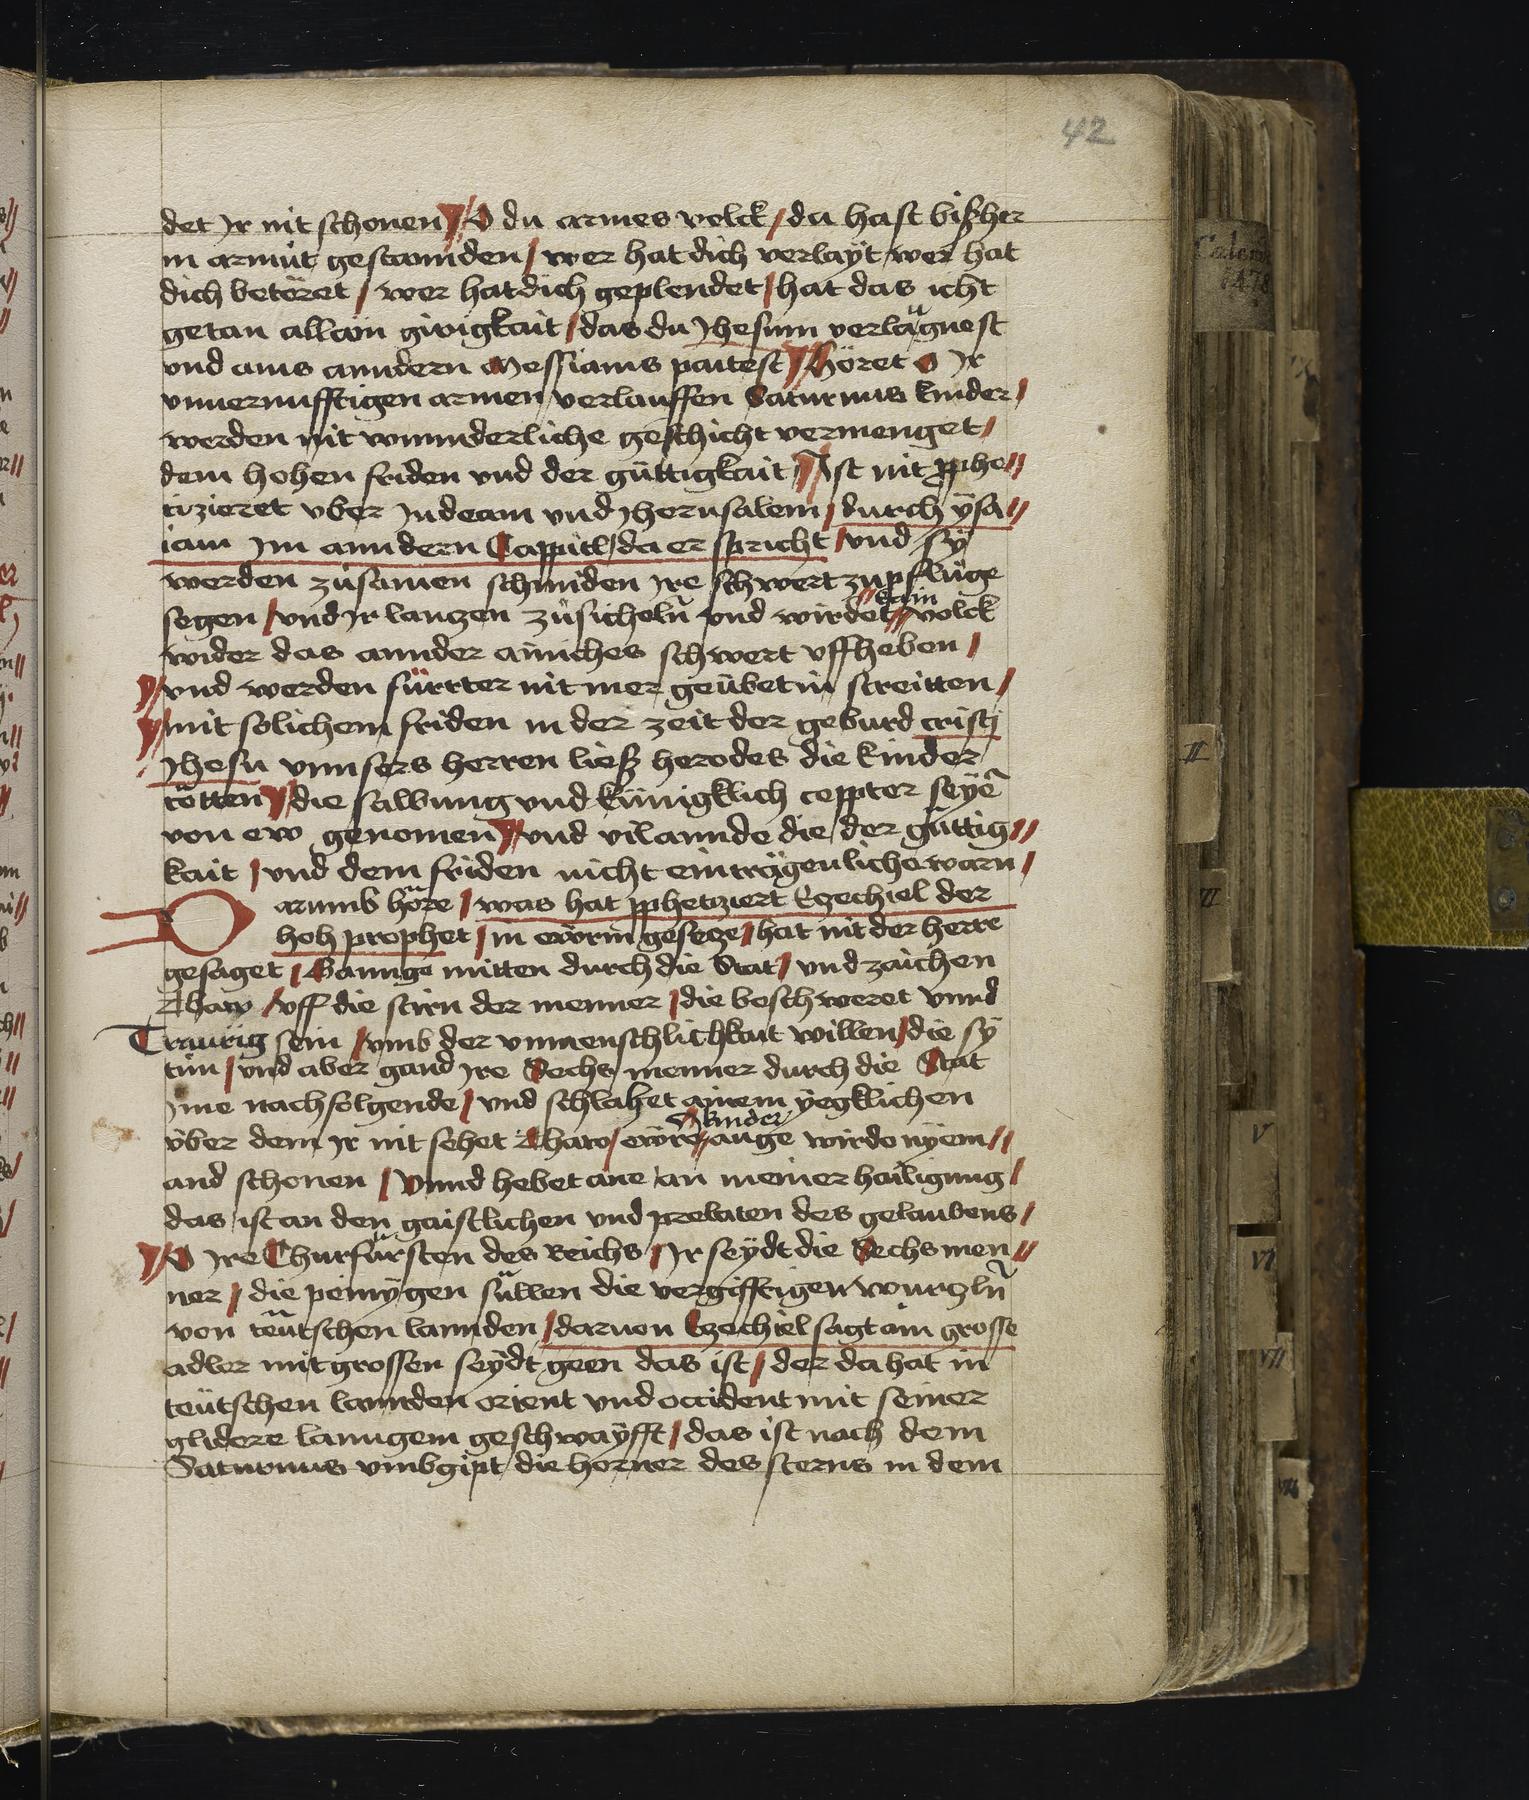 42
det Jr nit schonen // O du armes volck / du hast bißher
in armůt gestannden / wer hat dich verlayt wer hat
dich betöret / wer hat dich geplendet / hat das icht
getan allain givigkait / das du Jhesum verlaͧgnest
vnd ains anndern Messiams paitest // Höret o Jr
vnuernufftigen armen verlauffen Saturnus kinder /
werden nit wunnderliche geschicht vermenget /
dem hohen friden vnd der güttigkait // Ist nit pphe//
tizieret vber Judeam vnd Jherusalem / durch ÿsa//
iam Jm anndern Cappitl / da er spricht / vnd sÿ
werden zůsamen schmiden Jre schwert zu pflüge
segen / vnd Jr lanzen zůsicheln vnd wirdet // kain // volck
wider das annder ainiches schwert vffheben /
// vnd werden fürtter nit mer geübet in streitten /
// mit solichem friden in der zeit der geburd cristi
Jhesu vnnsers herren ließ herodes die kinder
tötten // die salbung vnd künigklich ceppter seyē
von ew genomen // vnd vil annde die der güttig//
kait / vnd dem friden nicht einträgenliche warn /
Darumb höre / was hat pphetiziert Ezechiel der
hoh prophet / in ewrm gesetze / hat nit der herre
gesaget / Gannge mitten durch die Stat / vnd zaichen
Thaw / vff die stirn der menner / die beschweret vnnd
Traurig sein / vmb der vnmenschlichkait willen / die sÿ
tůn / vnd aber gand Jre Sechs menner durch die Stat
Jme nachfolgende / vnd schlahet ainem yegklichen
über dem Jr nit sehet Thaw / ewre // kinder // auge wirdo nyem//
and schonen / Vnnd hebet ane an meiner hailigung /
das ist an den gaistlichen vnd prelaten des gelaubens /
// O Jre Churfürsten des Reichs / Jr seÿdt die Sechs men//
ner / die peinÿgen süllen die vergifftigen wurtzln
von teütschen lannden / daruon Ezechiel sagt ain grosse
adler mit grossen seÿdt geen das ist / der da hat in
teütschen lannden orient vnd occident mit seiner
glidere lanngem geschwaÿfft / das ist nach dem
Saturnus vmbgipt die horner des sterns in dem
1478
II
III
V
VI
VII